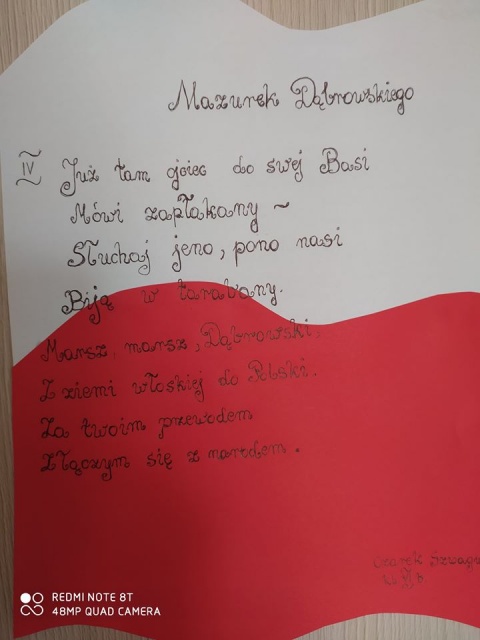 Mazurek Dąbrowskiego
IV
Już tam ojciec do swej Basi
Mówi zapłakany ~
Słuchaj jeno, pono nasi
Biją w tarabany.
Marsz, marsz, Dąbrowski,
Z ziemi włoskiej do Polski.
Za twoim przewodem
Złączym się z narodem.
Czarek
REDMI NOTE 8T
48MP QUAD CAMERA